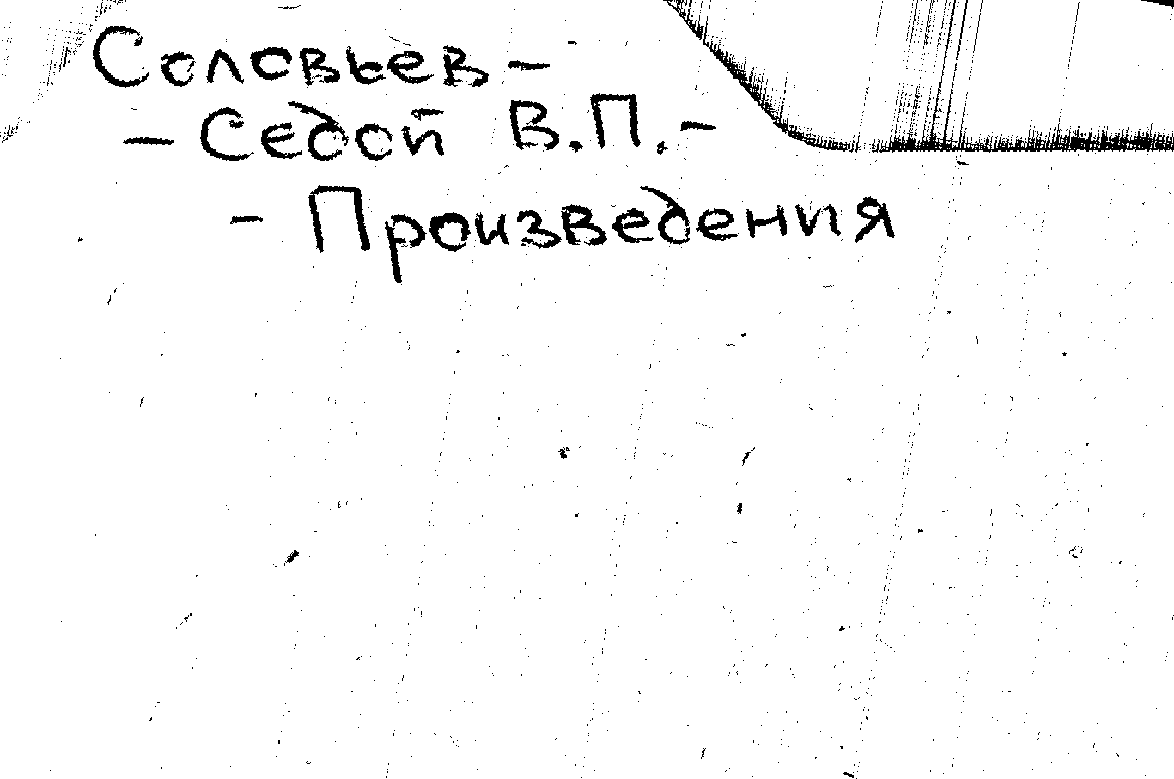 Соловьев –
– Седой В.П. –
– Произведения